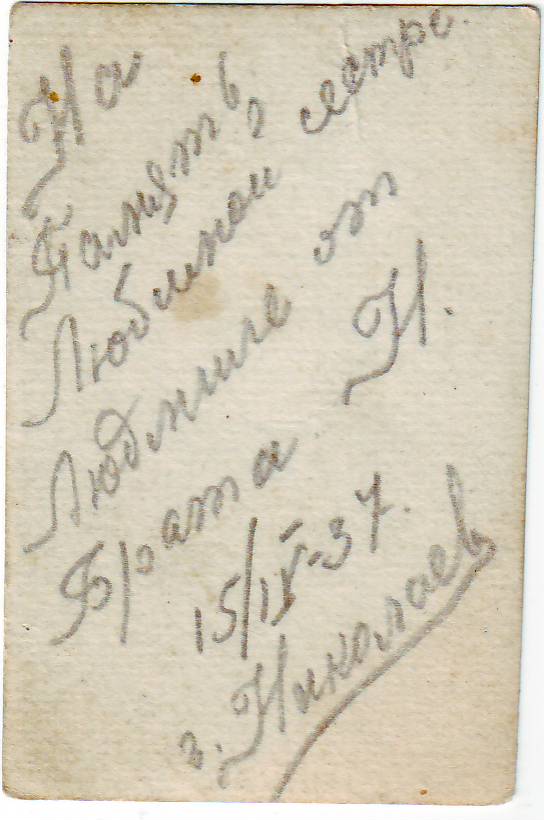 На
Память
Любимой сестре.
Людмиле от
Брата Н.
15/IV-37.
г. Николаев